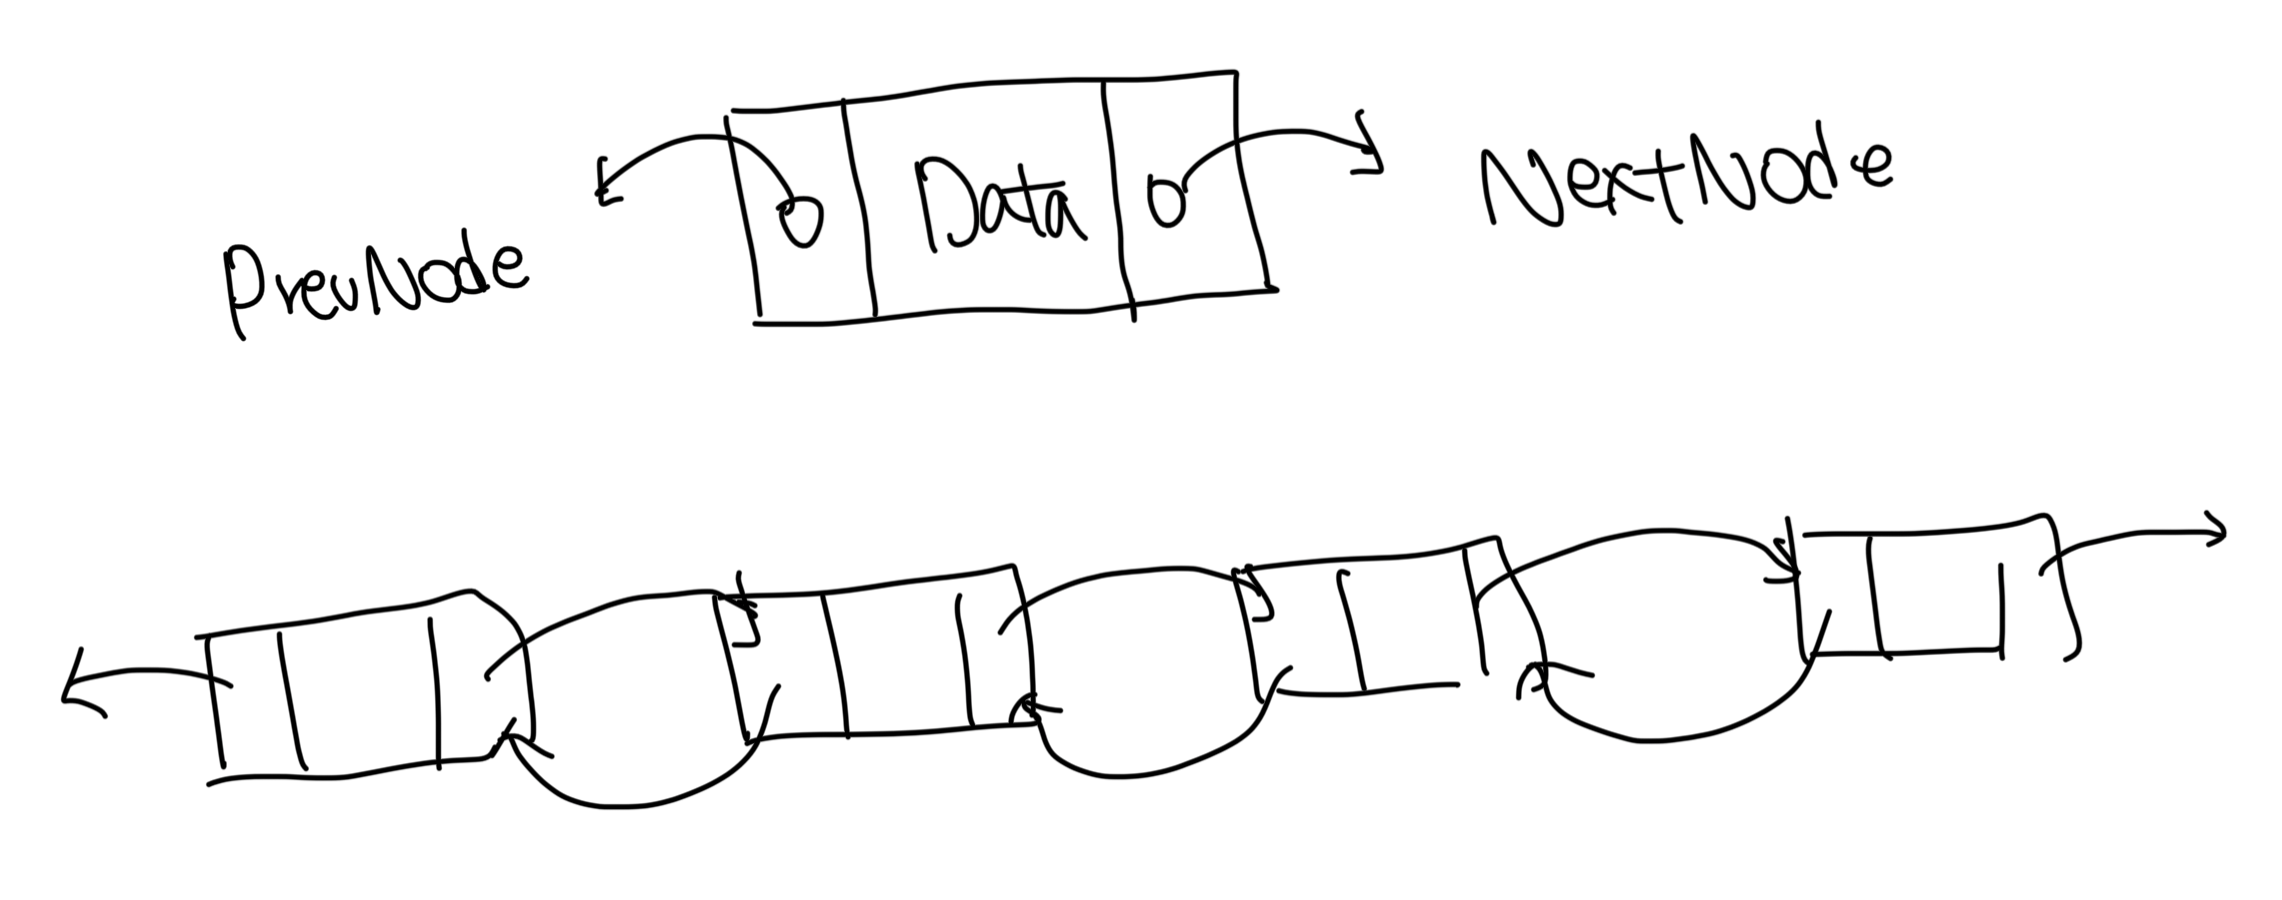 PrevNode
Data
NextNode